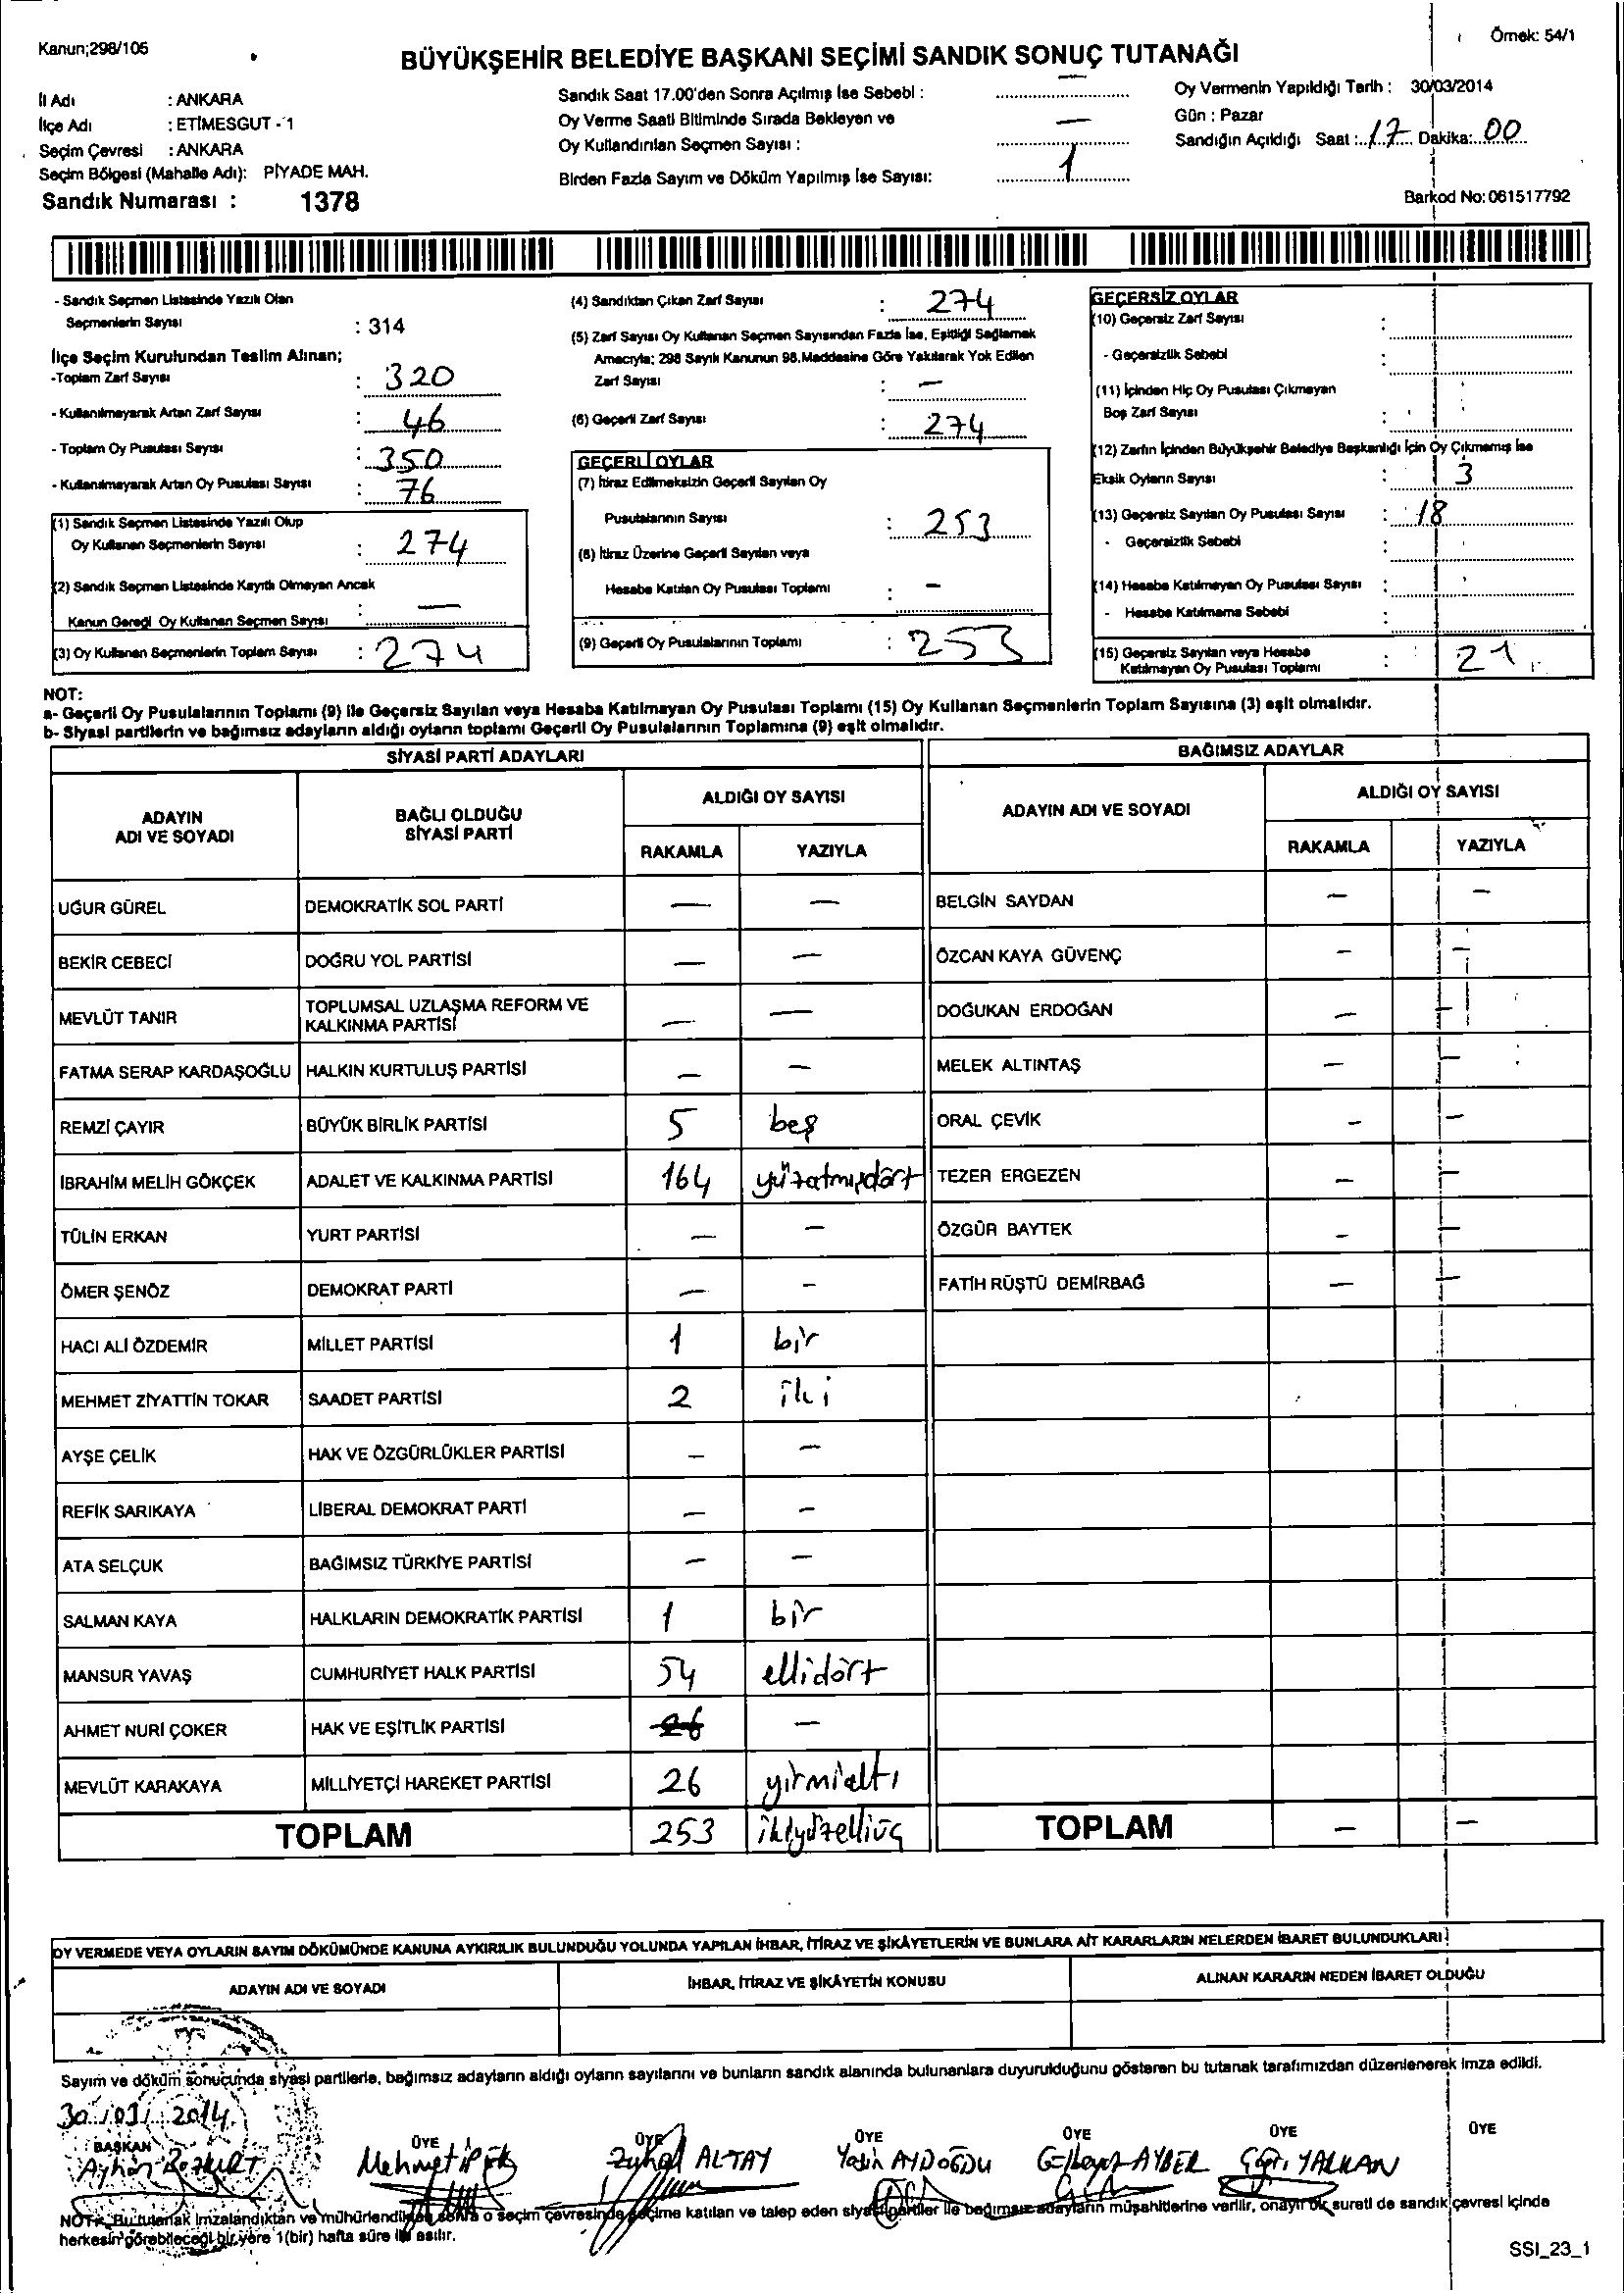 Kanun;298/105
Örnek: 54/1
BÜYÜKŞEHİR BELEDİYE BAŞKANI SEÇİMİ SANDIK SONUÇ TUTANAĞI
İl Adı : ANKARA
İlçe Adı : ETİMESGUT - 1
Seçim Çevresi : ANKARA
Seçim Bölgesi (Mahalle Adı): PİYADE MAH.
Sandık Numarası : 1378
Sandık Saat 17.00'den Sonra Açılmış İse Sebebi : —
Oy Verme Saati Bitiminde Sırada Bekleyen ve
Oy Kullandırılan Seçmen Sayısı : —
Birden Fazla Sayım ve Döküm Yapılmış İse Sayısı: 1
Oy Vermenin Yapıldığı Tarih : 30/03/2014
Gün : Pazar
Sandığın Açıldığı Saat : 17 Dakika: 00
Barkod No: 061517792
- Sandık Seçmen Listesinde Yazılı Olan
Seçmenlerin Sayısı : 314
İlçe Seçim Kurulundan Teslim Alınan;
-Toplam Zarf Sayısı : 320
- Kullanılmayarak Artan Zarf Sayısı : 46
- Toplam Oy Pusulası Sayısı : 350
- Kullanılmayarak Artan Oy Pusulası Sayısı : 76
(1) Sandık Seçmen Listesinde Yazılı Olup
Oy Kullanan Seçmenlerin Sayısı : 274
(2) Sandık Seçmen Listesinde Kayıtlı Olmayan Ancak
Kanun Gereği Oy Kullanan Seçmen Sayısı : —
(3) Oy Kullanan Seçmenlerin Toplam Sayısı : 274
(4) Sandıktan Çıkan Zarf Sayısı : 274
(5) Zarf Sayısı Oy Kullanan Seçmen Sayısından Fazla İse, Eşitliği Sağlamak
Amacıyla; 298 Sayılı Kanunun 98.Maddesine Göre Yakılarak Yok Edilen
Zarf Sayısı : —
(6) Geçerli Zarf Sayısı : 274
GEÇERLİ OYLAR
(7) İtiraz Edilmeksizin Geçerli Sayılan Oy
Pusulalarının Sayısı : 253
(8) İtiraz Üzerine Geçerli Sayılan veya
Hesaba Katılan Oy Pusulası Toplamı : —
(9) Geçerli Oy Pusulalarının Toplamı : 253
GEÇERSİZ OYLAR
(10) Geçersiz Zarf Sayısı :
- Geçersizlik Sebebi :
(11) İçinden Hiç Oy Pusulası Çıkmayan
Boş Zarf Sayısı :
(12) Zarfın İçinden Büyükşehir Belediye Başkanlığı İçin Oy Çıkmamış İse
Eksik Oyların Sayısı : 3
(13) Geçersiz Sayılan Oy Pusulası Sayısı : 18
- Geçersizlik Sebebi :
(14) Hesaba Katılmayan Oy Pusulası Sayısı :
- Hesaba Katılmama Sebebi :
(15) Geçersiz Sayılan veya Hesaba
Katılmayan Oy Pusulası Toplamı : 21
NOT:
a- Geçerli Oy Pusulalarının Toplamı (9) ile Geçersiz Sayılan veya Hesaba Katılmayan Oy Pusulası Toplamı (15) Oy Kullanan Seçmenlerin Toplam Sayısına (3) eşit olmalıdır.
b- Siyasi partilerin ve bağımsız adayların aldığı oyların toplamı Geçerli Oy Pusulalarının Toplamına (9) eşit olmalıdır.
SİYASİ PARTİ ADAYLARI
ADAYIN ADI VE SOYADI BAĞLI OLDUĞU SİYASİ PARTİ ALDIĞI OY SAYISI
RAKAMLA YAZIYLA
UĞUR GÜREL DEMOKRATİK SOL PARTİ — —
BEKİR CEBECİ DOĞRU YOL PARTİSİ — —
MEVLÜT TANIR TOPLUMSAL UZLAŞMA REFORM VE KALKINMA PARTİSİ — —
FATMA SERAP KARDAŞOĞLU HALKIN KURTULUŞ PARTİSİ — —
REMZİ ÇAYIR BÜYÜK BİRLİK PARTİSİ 5 beş
İBRAHİM MELİH GÖKÇEK ADALET VE KALKINMA PARTİSİ 164 yüzatmışdört
TÜLİN ERKAN YURT PARTİSİ — —
ÖMER ŞENÖZ DEMOKRAT PARTİ — —
HACI ALİ ÖZDEMİR MİLLET PARTİSİ 1 bir
MEHMET ZİYATTİN TOKAR SAADET PARTİSİ 2 iki
AYŞE ÇELİK HAK VE ÖZGÜRLÜKLER PARTİSİ — —
REFİK SARIKAYA LİBERAL DEMOKRAT PARTİ — —
ATA SELÇUK BAĞIMSIZ TÜRKİYE PARTİSİ — —
SALMAN KAYA HALKLARIN DEMOKRATİK PARTİSİ 1 bir
MANSUR YAVAŞ CUMHURİYET HALK PARTİSİ 54 ellidört
AHMET NURİ ÇOKER HAK VE EŞİTLİK PARTİSİ 26 —
MEVLÜT KARAKAYA MİLLİYETÇİ HAREKET PARTİSİ 26 yirmialtı
TOPLAM 253 ikiyüzelliüç
BAĞIMSIZ ADAYLAR
ADAYIN ADI VE SOYADI ALDIĞI OY SAYISI
RAKAMLA YAZIYLA
BELGİN SAYDAN — —
ÖZCAN KAYA GÜVENÇ — —
DOĞUKAN ERDOĞAN — —
MELEK ALTINTAŞ — —
ORAL ÇEVİK — —
TEZER ERGEZEN — —
ÖZGÜR BAYTEK — —
FATİH RÜŞTÜ DEMİRBAĞ — —
TOPLAM — —
OY VERMEDE VEYA OYLARIN SAYIM DÖKÜMÜNDE KANUNA AYKIRILIK BULUNDUĞU YOLUNDA YAPILAN İHBAR, İTİRAZ VE ŞİKÂYETLERİN VE BUNLARA AİT KARARLARIN NELERDEN İBARET BULUNDUKLARI
ADAYIN ADI VE SOYADI İHBAR, İTİRAZ VE ŞİKÂYETİN KONUSU ALINAN KARARIN NEDEN İBARET OLDUĞU
Sayım ve döküm sonucunda siyasi partilerle, bağımsız adayların aldığı oyların sayılarını ve bunların sandık alanında bulunanlara duyurulduğunu gösteren bu tutanak tarafımızdan düzenlenerek imza edildi.
30/03/2014
BAŞKAN ÜYE ÜYE ÜYE ÜYE ÜYE ÜYE
Ayhan BOZKURT Mehmet Zuhal ALTAY Yasin AYDOĞDU AYBER YALKAN
NOT: Bu tutanak imzalandıktan ve mühürlendikten sonra o seçim çevresinde seçime katılan ve talep eden siyasi partiler ile bağımsız adayların müşahitlerine verilir, onaylı bir sureti de sandık çevresi içinde
herkesin görebileceği bir yere 1(bir) hafta süre ile asılır.
SSI_23_1